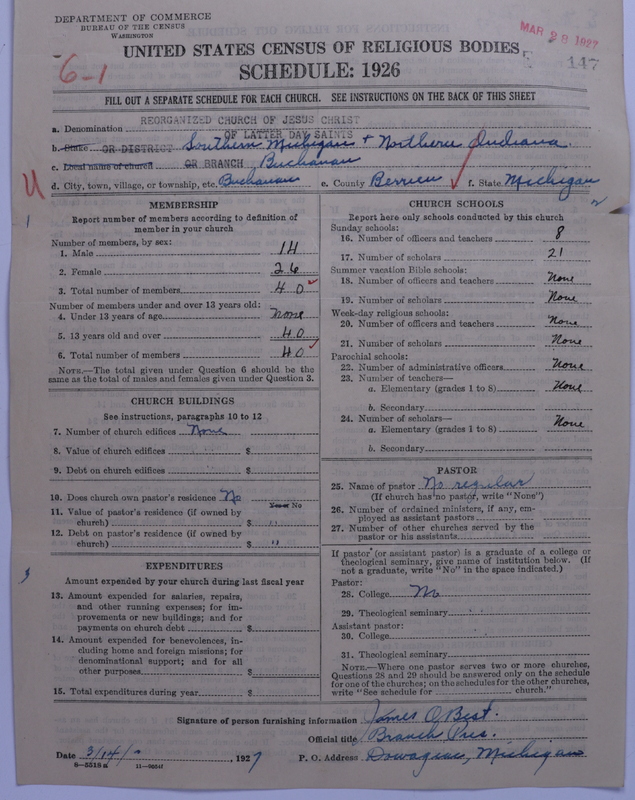 DEPARTMENT OF COMMERCE
BUREAU OF THE CENSUS
WASHINGTON
MAR 28 1927
147
6-1
UNITED STATES CENSUS OF RELIGIOUS BODIES
SCHEDULE: 1926
FILL OUT A SEPARATE SCHEDULE FOR EACH CHURCH. SEE INSTRUCTIONS ON THE BACK OF THIS SHEET
REORGANIZED CHURCH OF JESUS CHRIST
a. Denomination
OF LATTER DAY SAINTS
b. State OR DISTRICT Southern Michigan + Northern Indiana
c. Local name of church OR BRANCH Buchanan
d. City, town, village, or township, etc. Buchanan e. County Berrien f. State Michigan
MEMBERSHIP
Report number of members according to definition of
member in your church
Number of members, by sex:
1. Male 14
2. Female 26
3. Total number of members 40
Number of members under and over 13 years old:
4. Under 13 years of age none
5. 13 years old and over 40
6. Total number of members 40
NOTE.—The total given under Question 6 should be the
same as the total of males and females given under Question 3.
CHURCH BUILDINGS
See instructions, paragraphs 10 to 12
7. Number of church edifices None
8. Value of church edifices $
9. Debt on church edifices $
10. Does church own pastor's residence No
Yes or No
11. Value of pastor's residence (if owned by
church) $ "
12. Debt on pastor's residence (if owned by
church) $ "
EXPENDITURES
Amount expended by your church during last fiscal year
13. Amount expended for salaries, repairs,
and other running expenses; for im-
provements or new buildings; and for
payments on church debt $
14. Amount expended for benevolences, in-
cluding home and foreign missions; for
denominational support; and for all
other purposes $
15. Total expenditures during year $
CHURCH SCHOOLS
Report here only schools conducted by this church
Sunday schools:
16. Number of officers and teachers 8
17. Number of scholars 21
Summer vacation Bible schools:
18. Number of officers and teachers None
19. Number of scholars None
Week-day religious schools:
20. Number of officers and teachers None
21. Number of scholars None
Parochial schools:
22. Number of administrative officers None
23. Number of teachers—
a. Elementary (grades 1 to 8) None
b. Secondary
24. Number of scholars—
a. Elementary (grades 1 to 8) None
b. Secondary
PASTOR
25. Name of pastor No regular
(If church has no pastor, write "None")
26. Number of ordained ministers, if any, em-
ployed as assistant pastors
27. Number of other churches served by the
pastor or his assistants
If pastor (or assistant pastor) is a graduate of a college or
theological seminary, give name of institution below. (If
not a graduate, write "No" in the space indicated.)
Pastor:
28. College No
29. Theological seminary
Assistant pastor:
30. College
31. Theological seminary
NOTE.—Where one pastor serves two or more churches,
Questions 28 and 29 should be answered only on the schedule
for one of the churches; on the schedules for the other churches,
write "See schedule for church."
Signature of person furnishing information James O Best.
Official title Branch Pres.
Date 3/14/ , 1927 P. O. Address Dowagiac, Michigan
8-5518 a